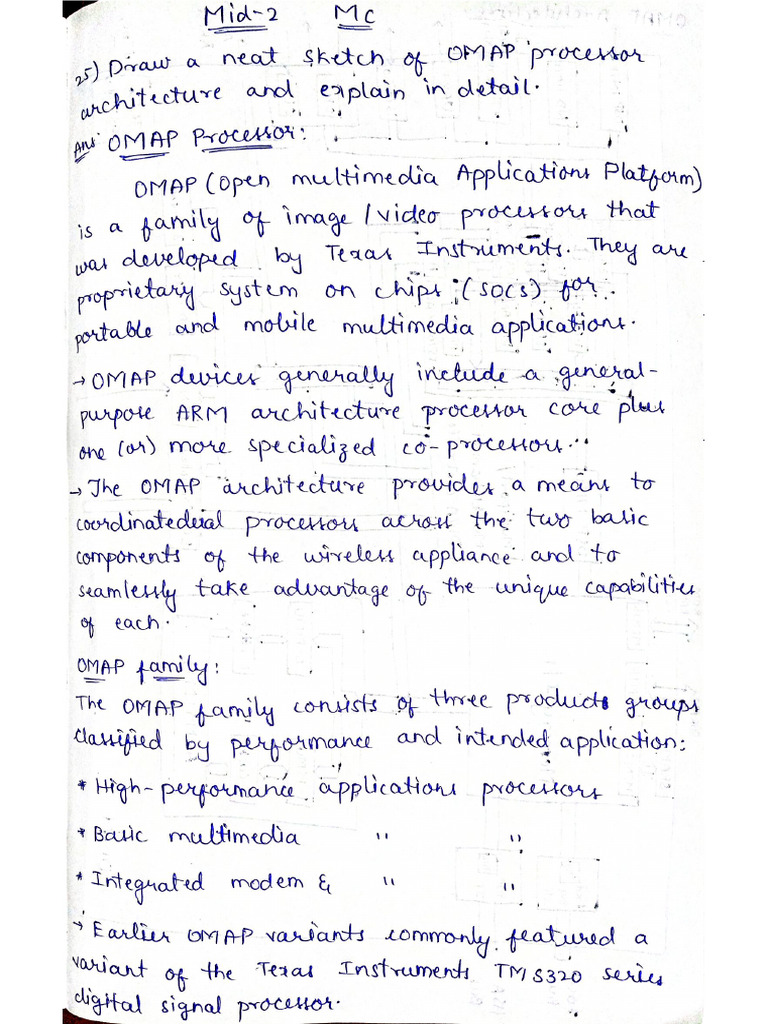 Mid-2 Mc
25) Draw a neat sketch of OMAP processor
architecture and explain in detail.
Ans OMAP Processor:
OMAP (Open multimedia Applications Platform)
is a family of image/video processors that
was developed by Texas Instruments. They are
proprietary system on chips (SOCs) for
portable and mobile multimedia applications.
→ OMAP devices generally include a general-
purpose ARM architecture processor core plus
one (or) more specialized co-processors.
→ The OMAP architecture provides a means to
coordinatedeial processors across the two basic
components of the wireless appliance and to
seamlessly take advantage of the unique capabilities
of each.
OMAP family:
The OMAP family consists of three products groups
classified by performance and intended application:
* High-performance applications processors
* Basic multimedia " "
* Integrated modem & " "
→ Earlier OMAP variants commonly featured a
variant of the Texas Instruments TMS320 series
digital signal processor.